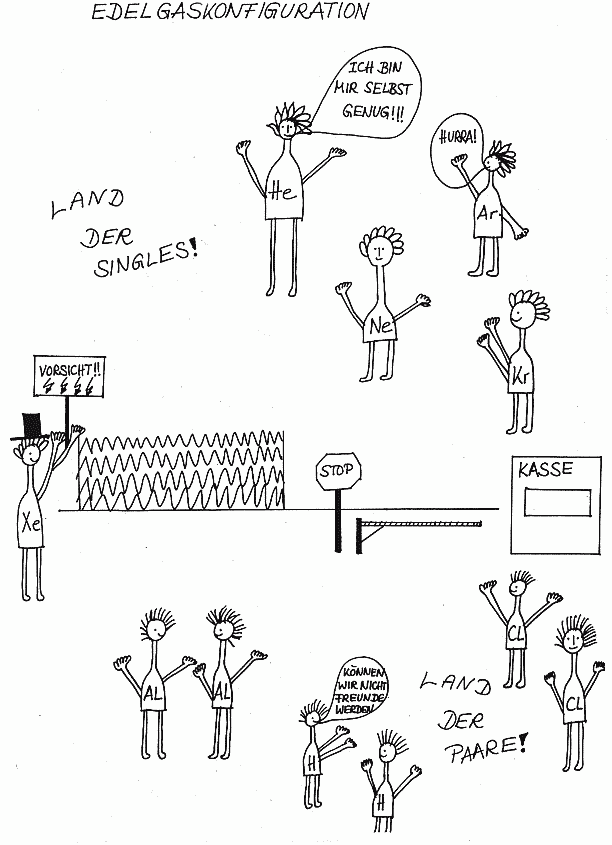 EDELGASKONFIGURATION
ICH BIN
MIR SELBST
GENUG!!!
HURRA!
He
Ar
LAND
DER
SINGLES!
Ne
Kr
VORSICHT!!
Xe
STOP
KASSE
AL
AL
KÖNNEN
WIR NICHT
FREUNDE
WERDEN
H
H
CL
CL
LAND
DER
PAARE!